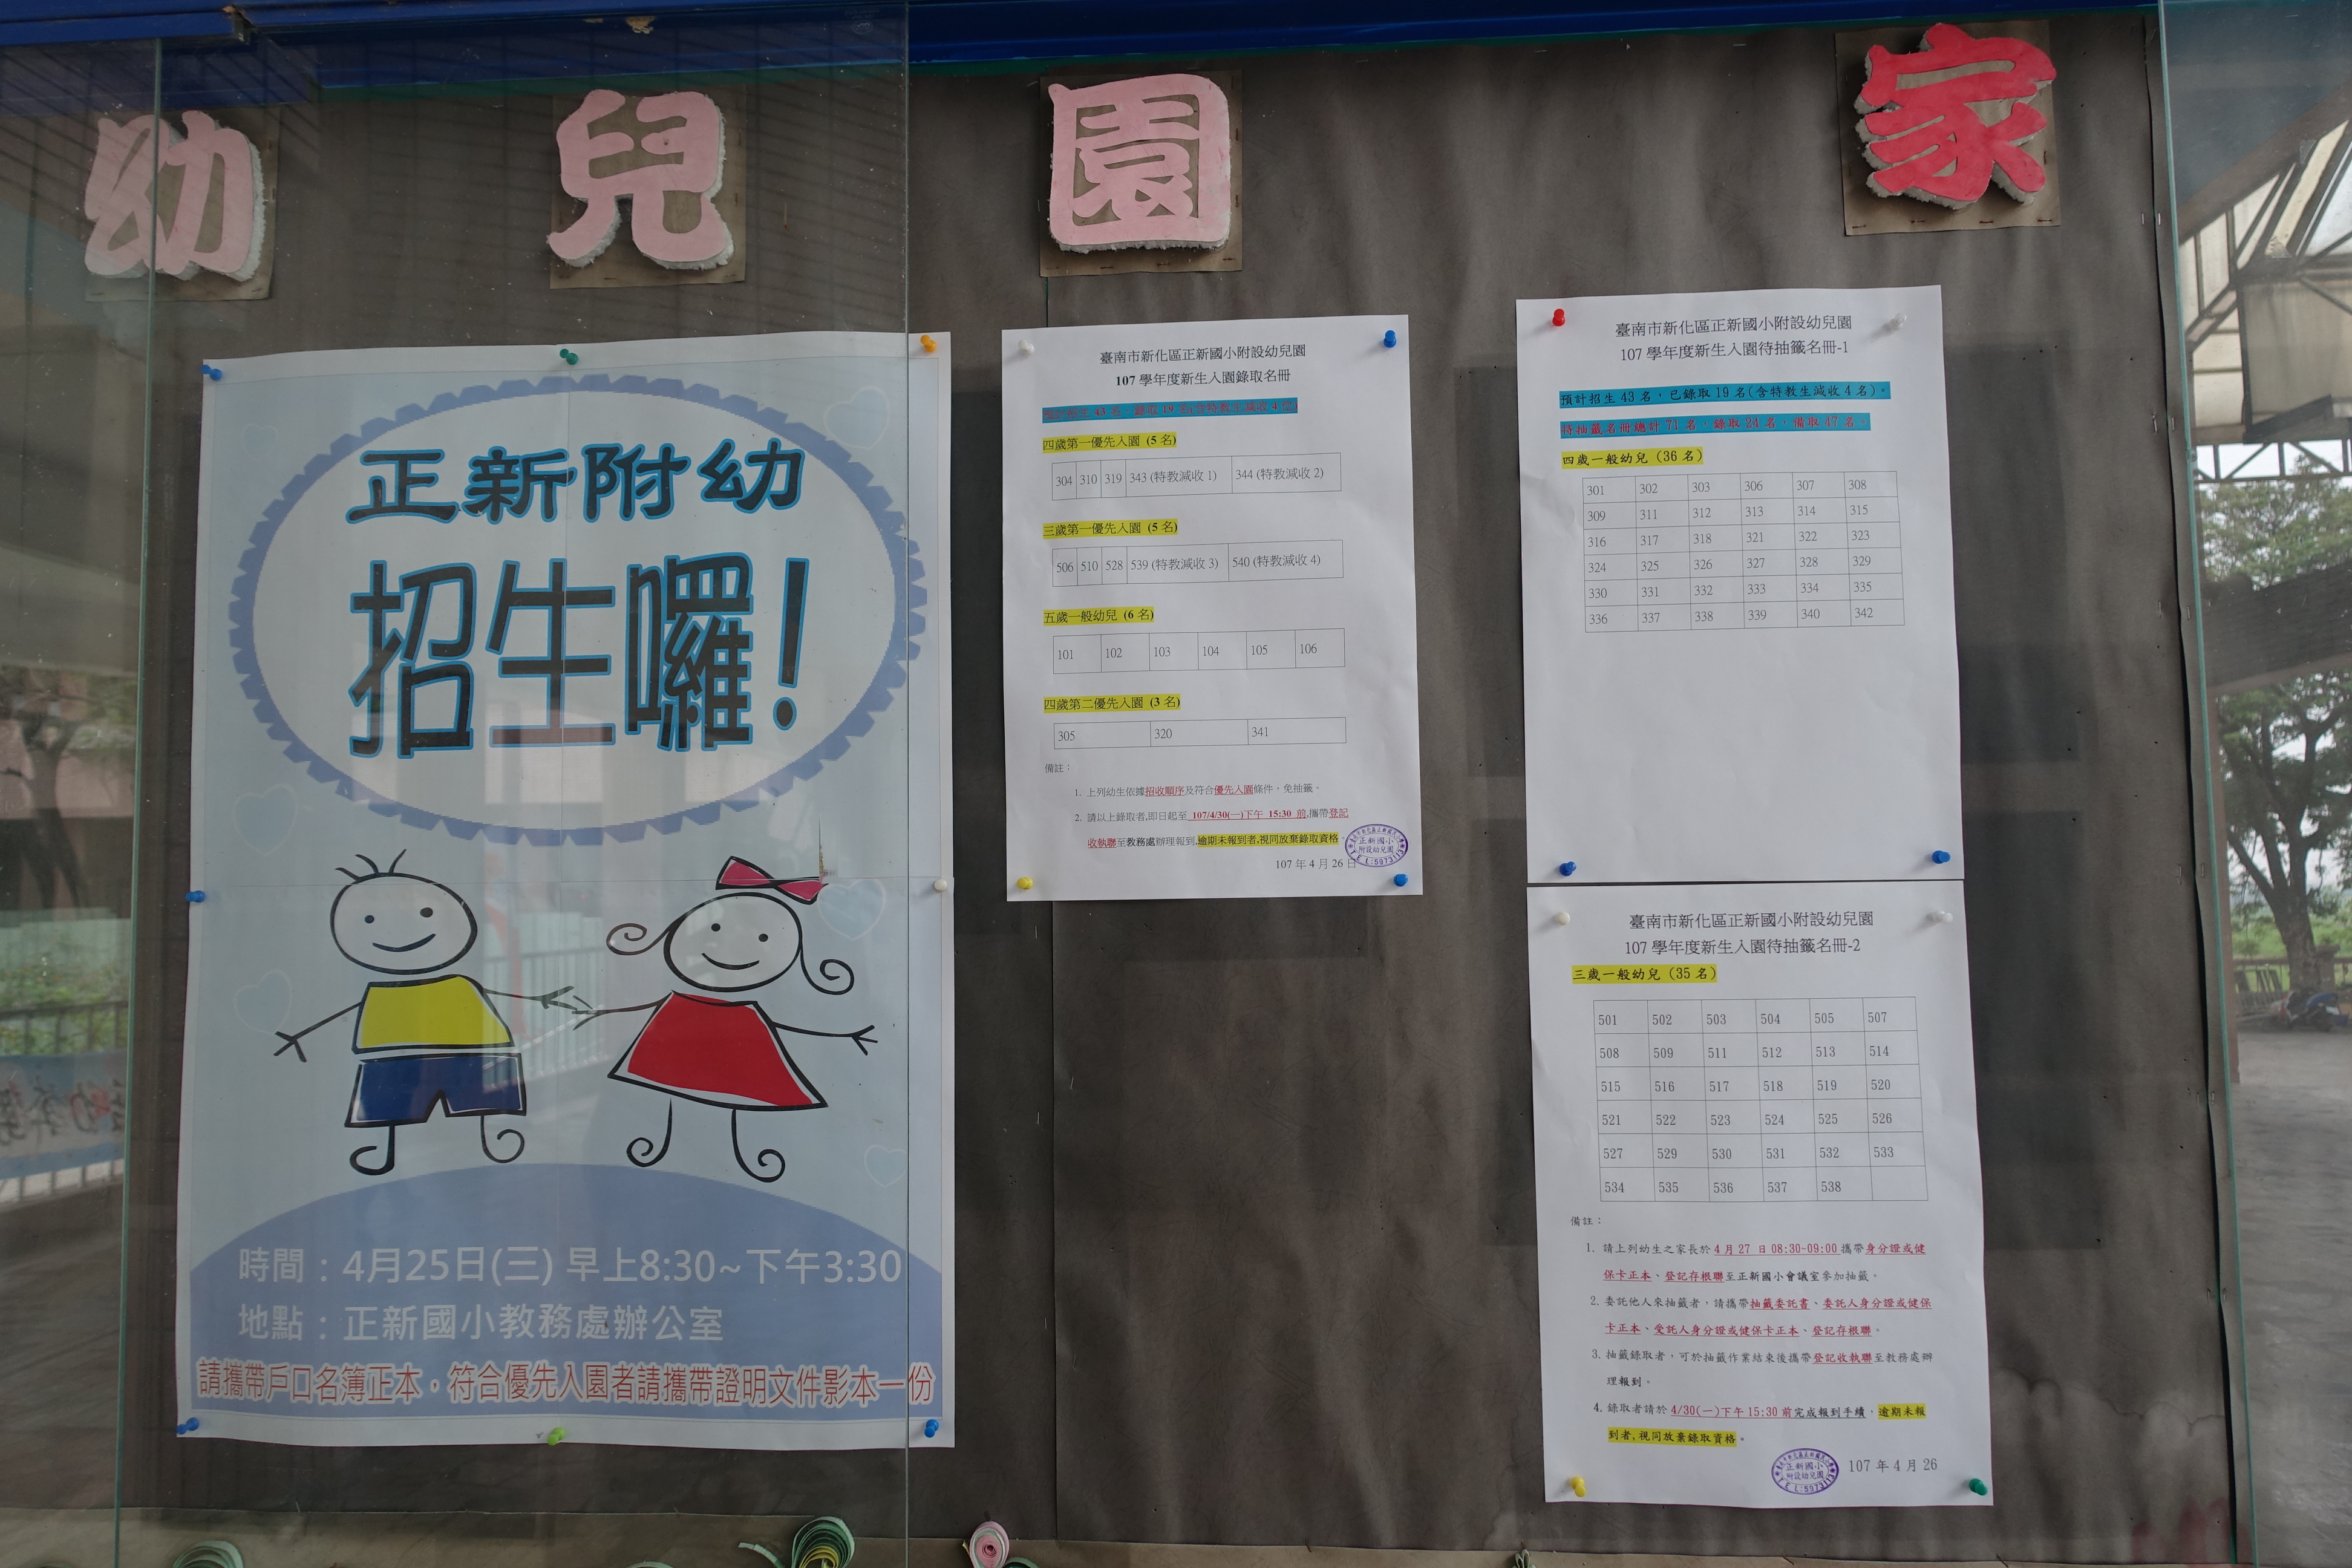 幼兒園 家
正新附幼
招生囉!
時間：4月25日(三) 早上8:30~下午3:30
地點：正新國小教務處辦公室
請攜帶戶口名簿正本，符合優先入園者請攜帶證明文件影本一份
臺南市新化區正新國小附設幼兒園
107 學年度新生入園錄取名冊
預計招生 43 名，錄取 19 名(含特教生減收 4 名)
四歲第一優先入園 (5 名)
304 310 319 343 (特教減收 1) 344 (特教減收 2)
三歲第一優先入園 (5 名)
506 510 528 539 (特教減收 3) 540 (特教減收 4)
五歲一般幼兒 (6 名)
101 102 103 104 105 106
四歲第二優先入園 (3 名)
305 320 341
備註：
1. 上列幼生依據招收順序及符合優先入園條件，免抽籤。
2. 請以上錄取者,即日起至 107/4/30(一)下午 15:30 前,攜帶登記
收執聯至教務處辦理報到,逾期未報到者,視同放棄錄取資格。
107 年 4 月 26 日
正新國小
附設幼兒園
臺南市新化區正新國小附設幼兒園
107 學年度新生入園待抽籤名冊-1
預計招生 43 名，已錄取 19 名(含特教生減收 4 名)。
待抽籤名冊總計 71 名，錄取 24 名，備取 47 名。
四歲一般幼兒（36 名）
301 302 303 306 307 308
309 311 312 313 314 315
316 317 318 321 322 323
324 325 326 327 328 329
330 331 332 333 334 335
336 337 338 339 340 342
臺南市新化區正新國小附設幼兒園
107 學年度新生入園待抽籤名冊-2
三歲一般幼兒（35 名）
501 502 503 504 505 507
508 509 511 512 513 514
515 516 517 518 519 520
521 522 523 524 525 526
527 529 530 531 532 533
534 535 536 537 538
備註：
1. 請上列幼生之家長於 4 月 27 日 08:30-09:00 攜帶身分證或健
保卡正本、登記存根聯至正新國小會議室參加抽籤。
2. 委託他人來抽籤者，請攜帶抽籤委託書、委託人身分證或健保
卡正本、受託人身分證或健保卡正本、登記存根聯。
3. 抽籤錄取者，可於抽籤作業結束後攜帶登記收執聯至教務處辦
理報到。
4. 錄取者請於 4/30(一)下午 15:30 前完成報到手續，逾期未報
到者,視同放棄錄取資格。
正新國小
附設幼兒園
107 年 4 月 26